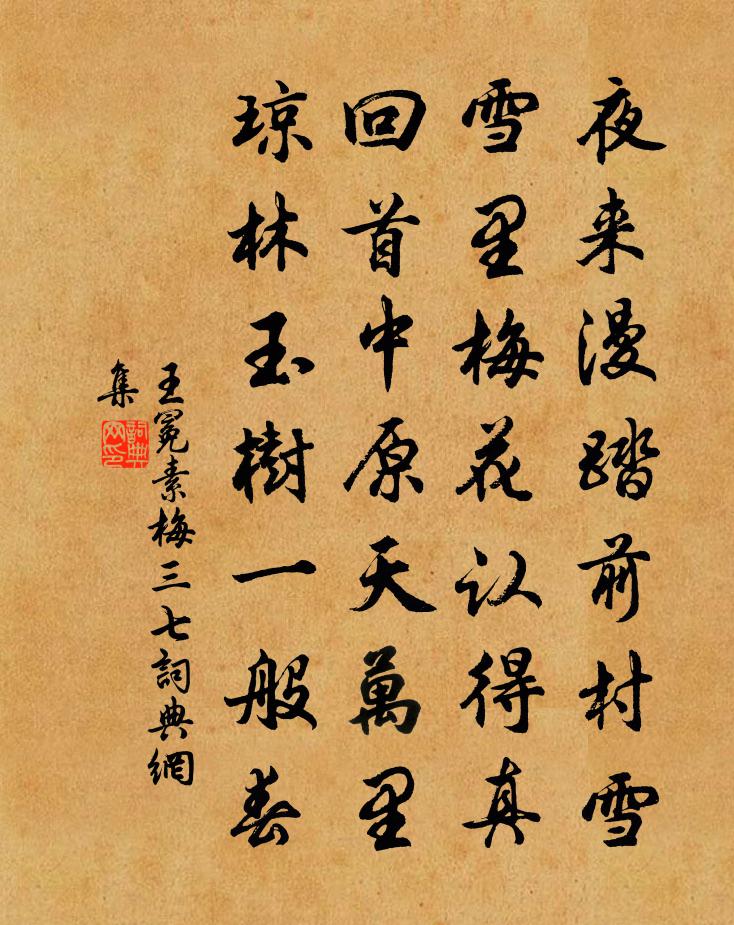 夜来漫踏前村雪
雪里梅花认得真
回首中原天萬里
琼林玉樹一般春
王冕素梅三七詞典網
集
詞典
网印